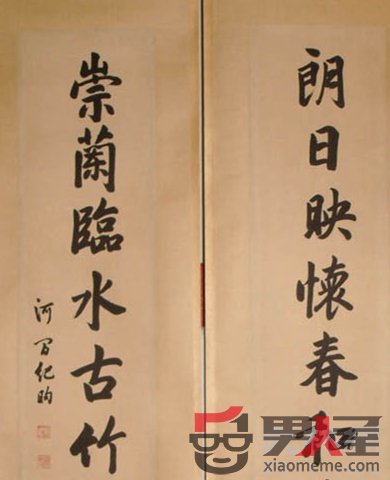 朗日映懷春和
崇蘭臨水古竹
河間紀昀
男人窩
xiaomeme.com